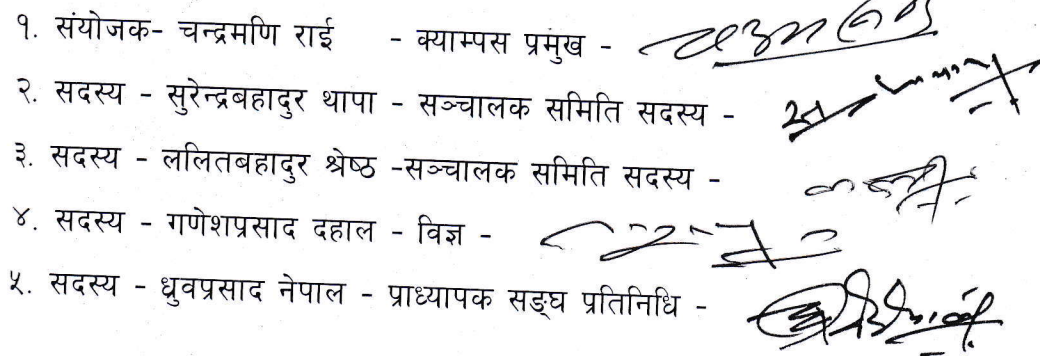 १. संयोजक- चन्द्रमणि राई - क्याम्पस प्रमुख -
२. सदस्य - सुरेन्द्रबहादुर थापा - सञ्चालक समिति सदस्य -
३. सदस्य - ललितबहादुर श्रेष्ठ -सञ्चालक समिति सदस्य -
४. सदस्य - गणेशप्रसाद दहाल - विज्ञ -
५. सदस्य - ध्रुवप्रसाद नेपाल - प्राध्यापक सङ्घ प्रतिनिधि -